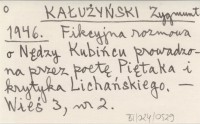 o KAŁUŻYŃSKI Zygmunt
1946. Fikcyjna rozmowa
o Nędzy Kubińcu prowadzo-
na przez poetę Piętaka i
krytyka Lichańskiego. —
Wieś 3, nr 2.